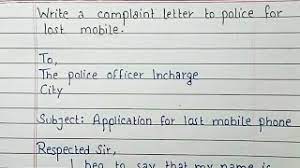 Write a complaint letter to police for
lost mobile.
To,
The police officer Incharge
City
Subject: Application for lost mobile phone
Respected Sir,
I beg to say that my name is